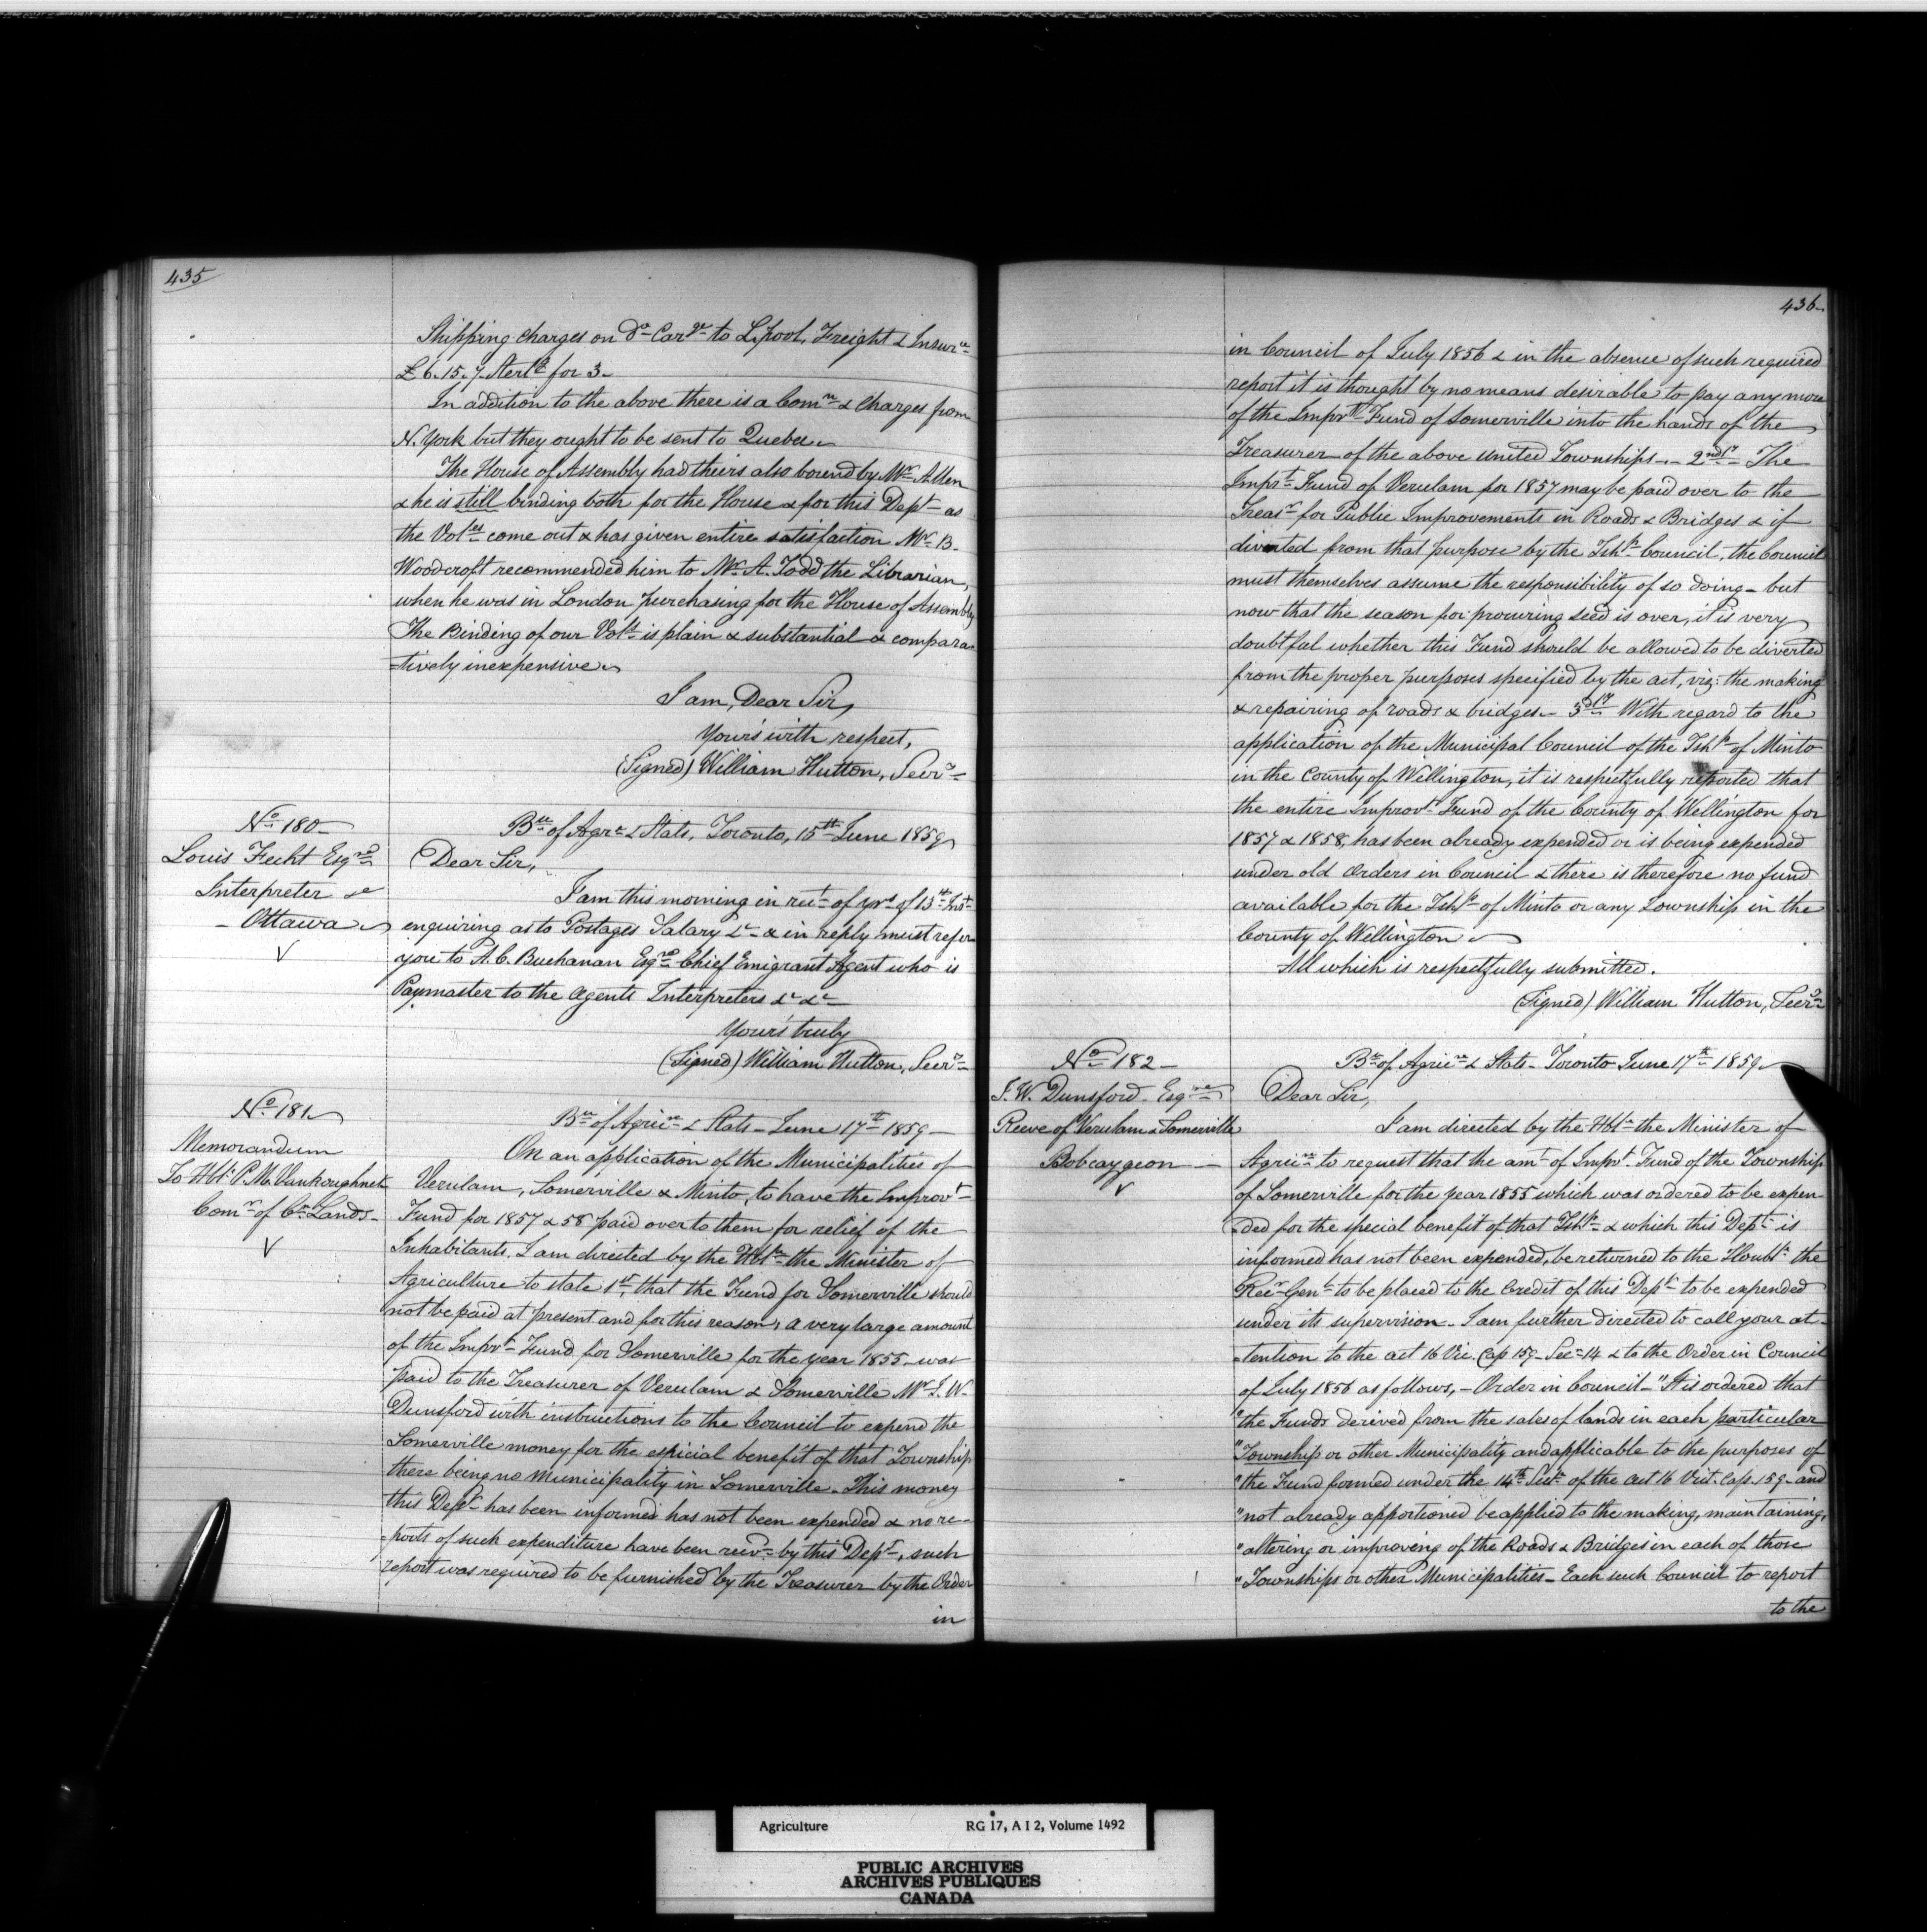 435
Shipping charges on do Carge to L.pool, Freight & Insurce
£6.15.7. Sterlg for 3.
In addition to the above there is a Comn & Charges from
N. York but they ought to be sent to Quebec.
The House of Assembly had theirs also bound by Mr Allen
& he is still binding both for the House & for this Dept as
the Voles come out & has given entire satisfaction Mr B.
Woodcroft recommended him to Mr A. Todd the Librarian,
when he was in London purchasing for the House of Assembly
The Binding of our Vols is plain & substantial & compara
=tively inexpensive.
I am, Dear Sir,
Yours with respect,
(Signed) William Hutton, Secry
No 180
Louis Fecht Esqre
Interpreter &c
- Ottawa
Bu of Agre & Stats, Toronto, 15th June 1859
Dear Sir,
I am this morning in rect of yrs of 13th Inst
enquiring as to Postages Salary &c & in reply must refer
you to A. C. Buchanan Esqre Chief Emigrant Agent who is
Paymaster to the Agents Interpreters &c &c
Yours truly
(Signed) William Hutton, Secry
No 181
Memorandum
To Hble P. M. Vankoughnet
Comr of Cn Lands
Bu of Agrice & Stats - June 17th 1859 -
On an application of the Municipalities of
Verulam, Somerville & Minto, to have the Improvt
Fund for 1857 & 58 paid over to them for relief of the
Inhabitants. I am directed by the Hble the Minister of
Agriculture to state 1st, that the Fund for Somerville should
not be paid at present and for this reason, a very large amount
of the Imprt Fund for Somerville for the year 1855 was
paid to the Treasurer of Verulam & Somerville Mr J. W.
Dunsford with instructions to the Council to expend the
Somerville money for the especial benefit of that Township
there being no Municipality in Somerville. This money
this Dept has been informed has not been expended & no re-
=ports of such expenditure have been recvd by this Dept, such
report was required to be furnished by the Treasurer by the Order
in
436
in Council of July 1856 & in the absence of such required
report it is thought by no means desirable to pay any more
of the Imprvt Fund of Somerville into the hands of the
Treasurer of the above united Townships. - 2ndly The
Imprt Fund of Verulam for 1857 may be paid over to the
Treasr for Public Improvements in Roads & Bridges & if
diverted from that purpose by the Tshp Council, the Council
must themselves assume the responsibility of so doing - but
now that the season for procuring seed is over, it is very
doubtful whether this Fund should be allowed to be diverted
from the proper purposes specified by the act, viz: the making
& repairing of roads & bridges. 3dly With regard to the
application of the Municipal Council of the Tshp of Minto
in the County of Wellington, it is respectfully reported that
the entire Improvt Fund of the County of Wellington for
1857 & 1858, has been already expended or is being expended
under old Orders in Council & there is therefore no fund
available for the Tshp of Minto or any Township in the
County of Wellington
All which is respectfully submitted.
(Signed) William Hutton, Secry
No 182
J. W. Dunsford Esqre
Reeve of Verulam & Somerville
Bobcaygeon
Bu of Agrice & Stats - Toronto June 17th 1859
Dear Sir,
I am directed by the Hble the Minister of
Agrice to request that the amt of Imprt Fund of the Township
of Somerville for the year 1855 which was ordered to be expen
ded for the special benefit of that Tshp & which this Dept is
informed has not been expended, be returned to the Honble the
Recr Genl to be placed to the Credit of this Dept to be expended
under its supervision. I am further directed to call your at-
-tention to the act 16 Vic. Cap 159 Sec 14 & to the Order in Council
of July 1856 as follows, - Order in Council - "It is ordered that
"the Funds derived from the sales of lands in each particular
"Township or other Municipality and applicable to the purposes of
"the Fund formed under the 14th Sect of the act 16 Vict. Cap. 159 and
"not already apportioned be applied to the making, maintaining,
"altering or improving of the Roads & Bridges in each of those
"Townships or other Municipalities - Each such Council to report
to the
Agriculture RG 17, A I 2, Volume 1492
PUBLIC ARCHIVES
ARCHIVES PUBLIQUES
CANADA